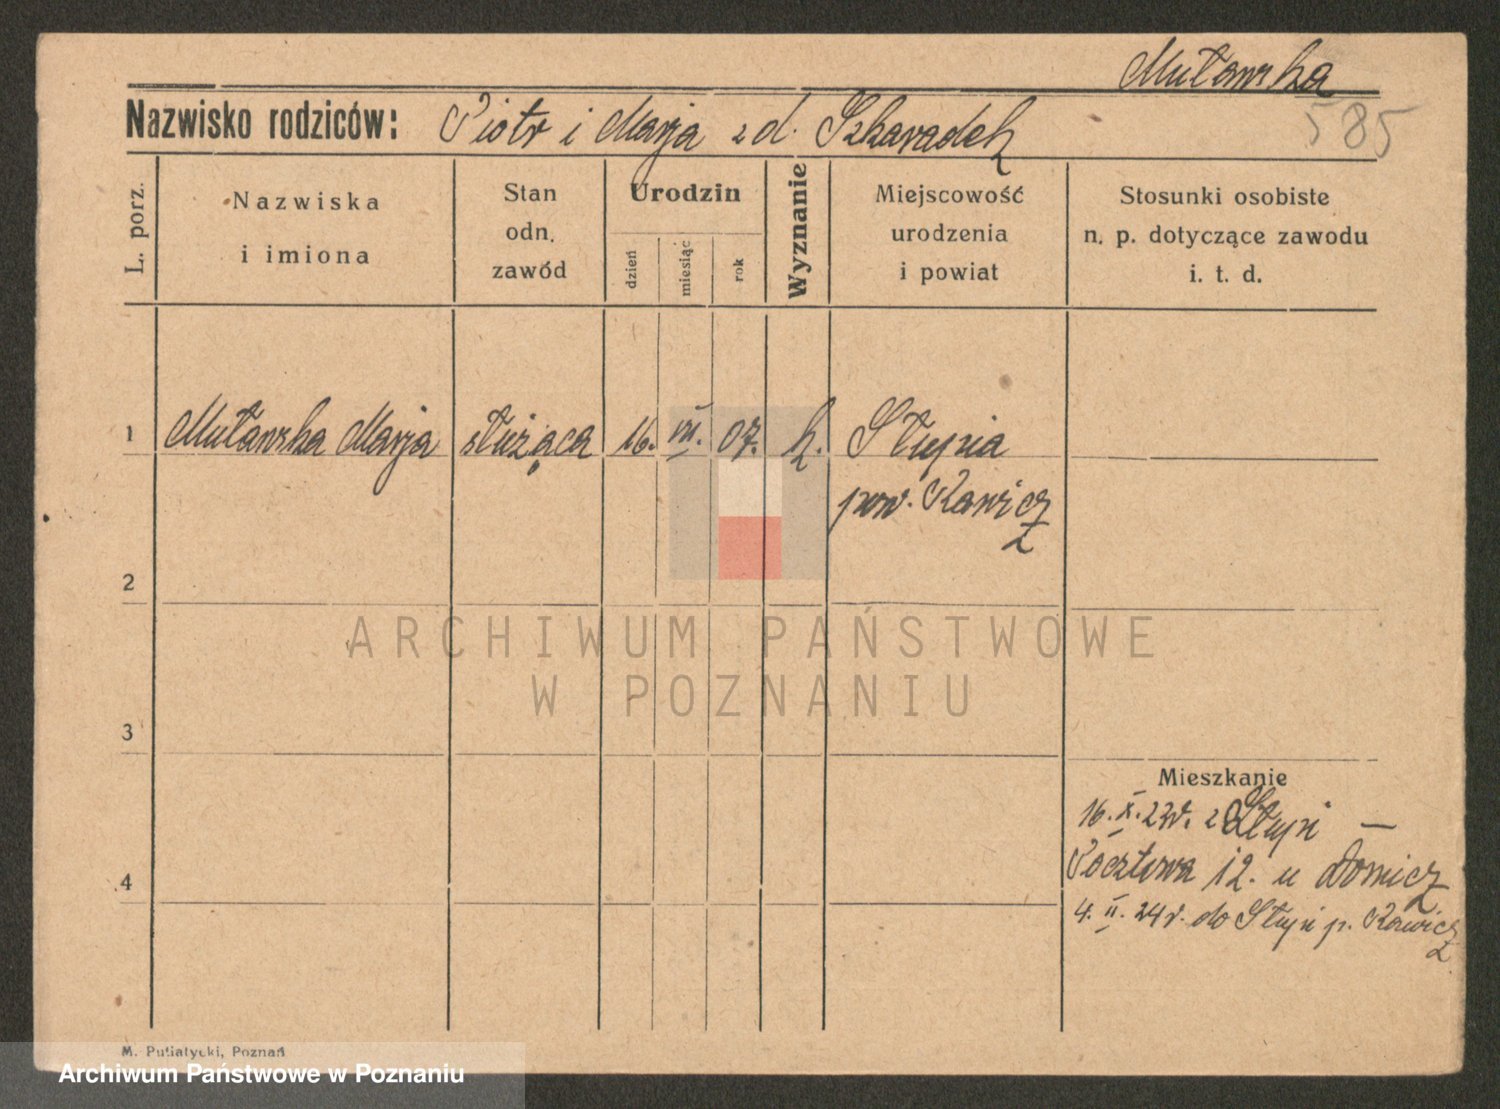 Muławska
Nazwisko rodziców: Piotr i Marja z d. Szkaradek
585
L. porz.
Nazwiska
i imiona
Stan
odn.
zawód
Urodzin
dzień
miesiąc
rok
Wyznanie
Miejscowość
urodzenia
i powiat
Stosunki osobiste
n. p. dotyczące zawodu
i. t. d.
1 Muławska Marja służąca 16. VII. 07. k. Słupia
pow. Rawicz
2
3
4
Mieszkanie
16. X. 23r. z Słupi —
Pocztowa 12. u
4. II. 24r. do Słupi p. Rawicz
M. Putiatycki, Poznań
ARCHIWUM PAŃSTWOWE
W POZNANIU
Archiwum Państwowe w Poznaniu